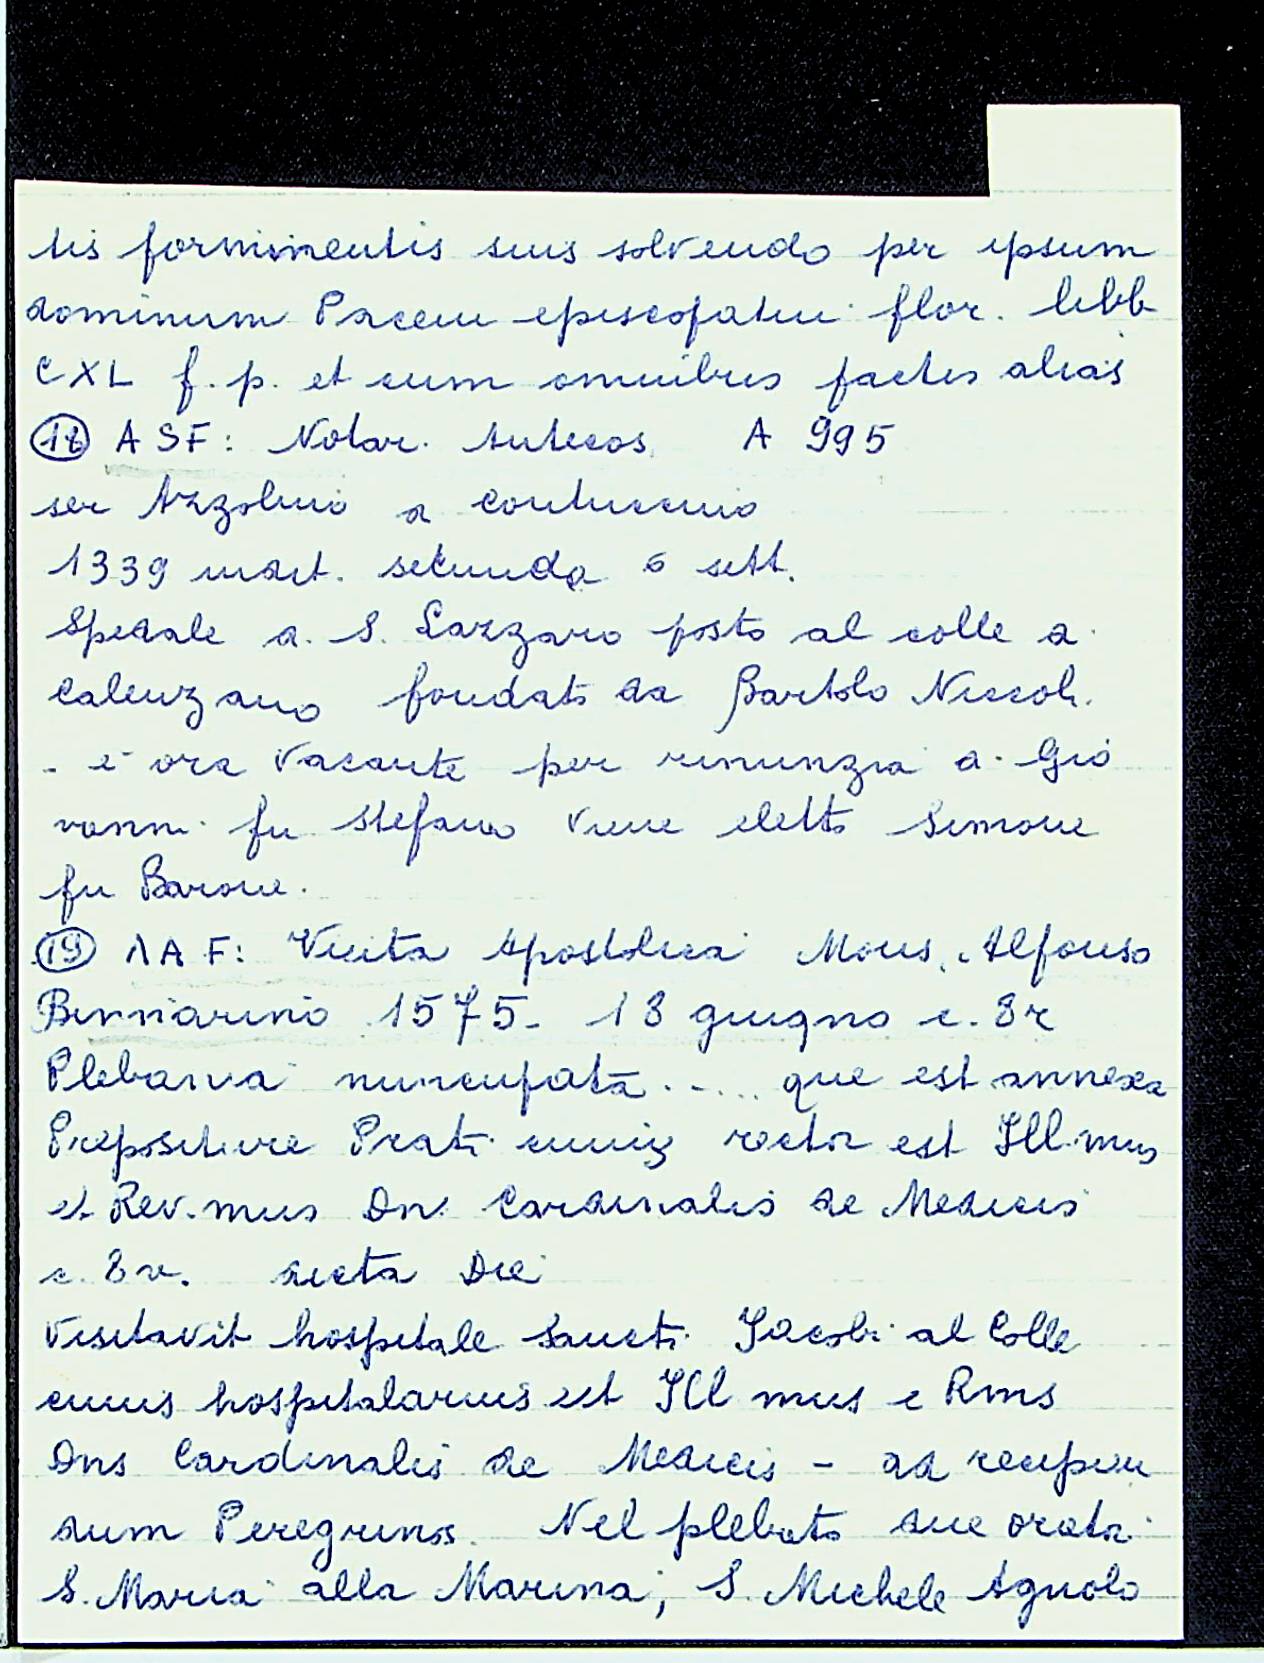 tis fornimentis suis solvendo per ipsum
dominum Pacem episcopatui flor. libb
CXL f. p. et cum omnibus factis alias
(18) ASF: Notar. Antecos. A 995
ser Azzolino d Contuccino
1339 indict. secunda 6 sett.
Spedale d. S. Lazzaro posto al colle a
Calenzano fondato da Bartolo Niccoli.
- è ora vacante per rinunzia d. Gio
vanni fu Stefano viene eletto Simone
fu Barone.
(19) AAF: Visita Apostolica Mons. Alfonso
Binnarino 1575 - 18 giugno c. 8r
Plebania nuncupata .... que est annexa
Prepositure Prati cuius rector est Ill.mus
et Rev.mus Dn. Cardinalis de Medicis
c. 8v. dicta Die
Visitavit hospitale Sancti Jacobi al Colle
cuius hospitalarius est Ill mus e Rms
Dns Cardinalis de Medicis - ad recipien
dum Peregrinos. Nel plebato due oratori
S. Maria alla Marina, S. Michele Agnolo